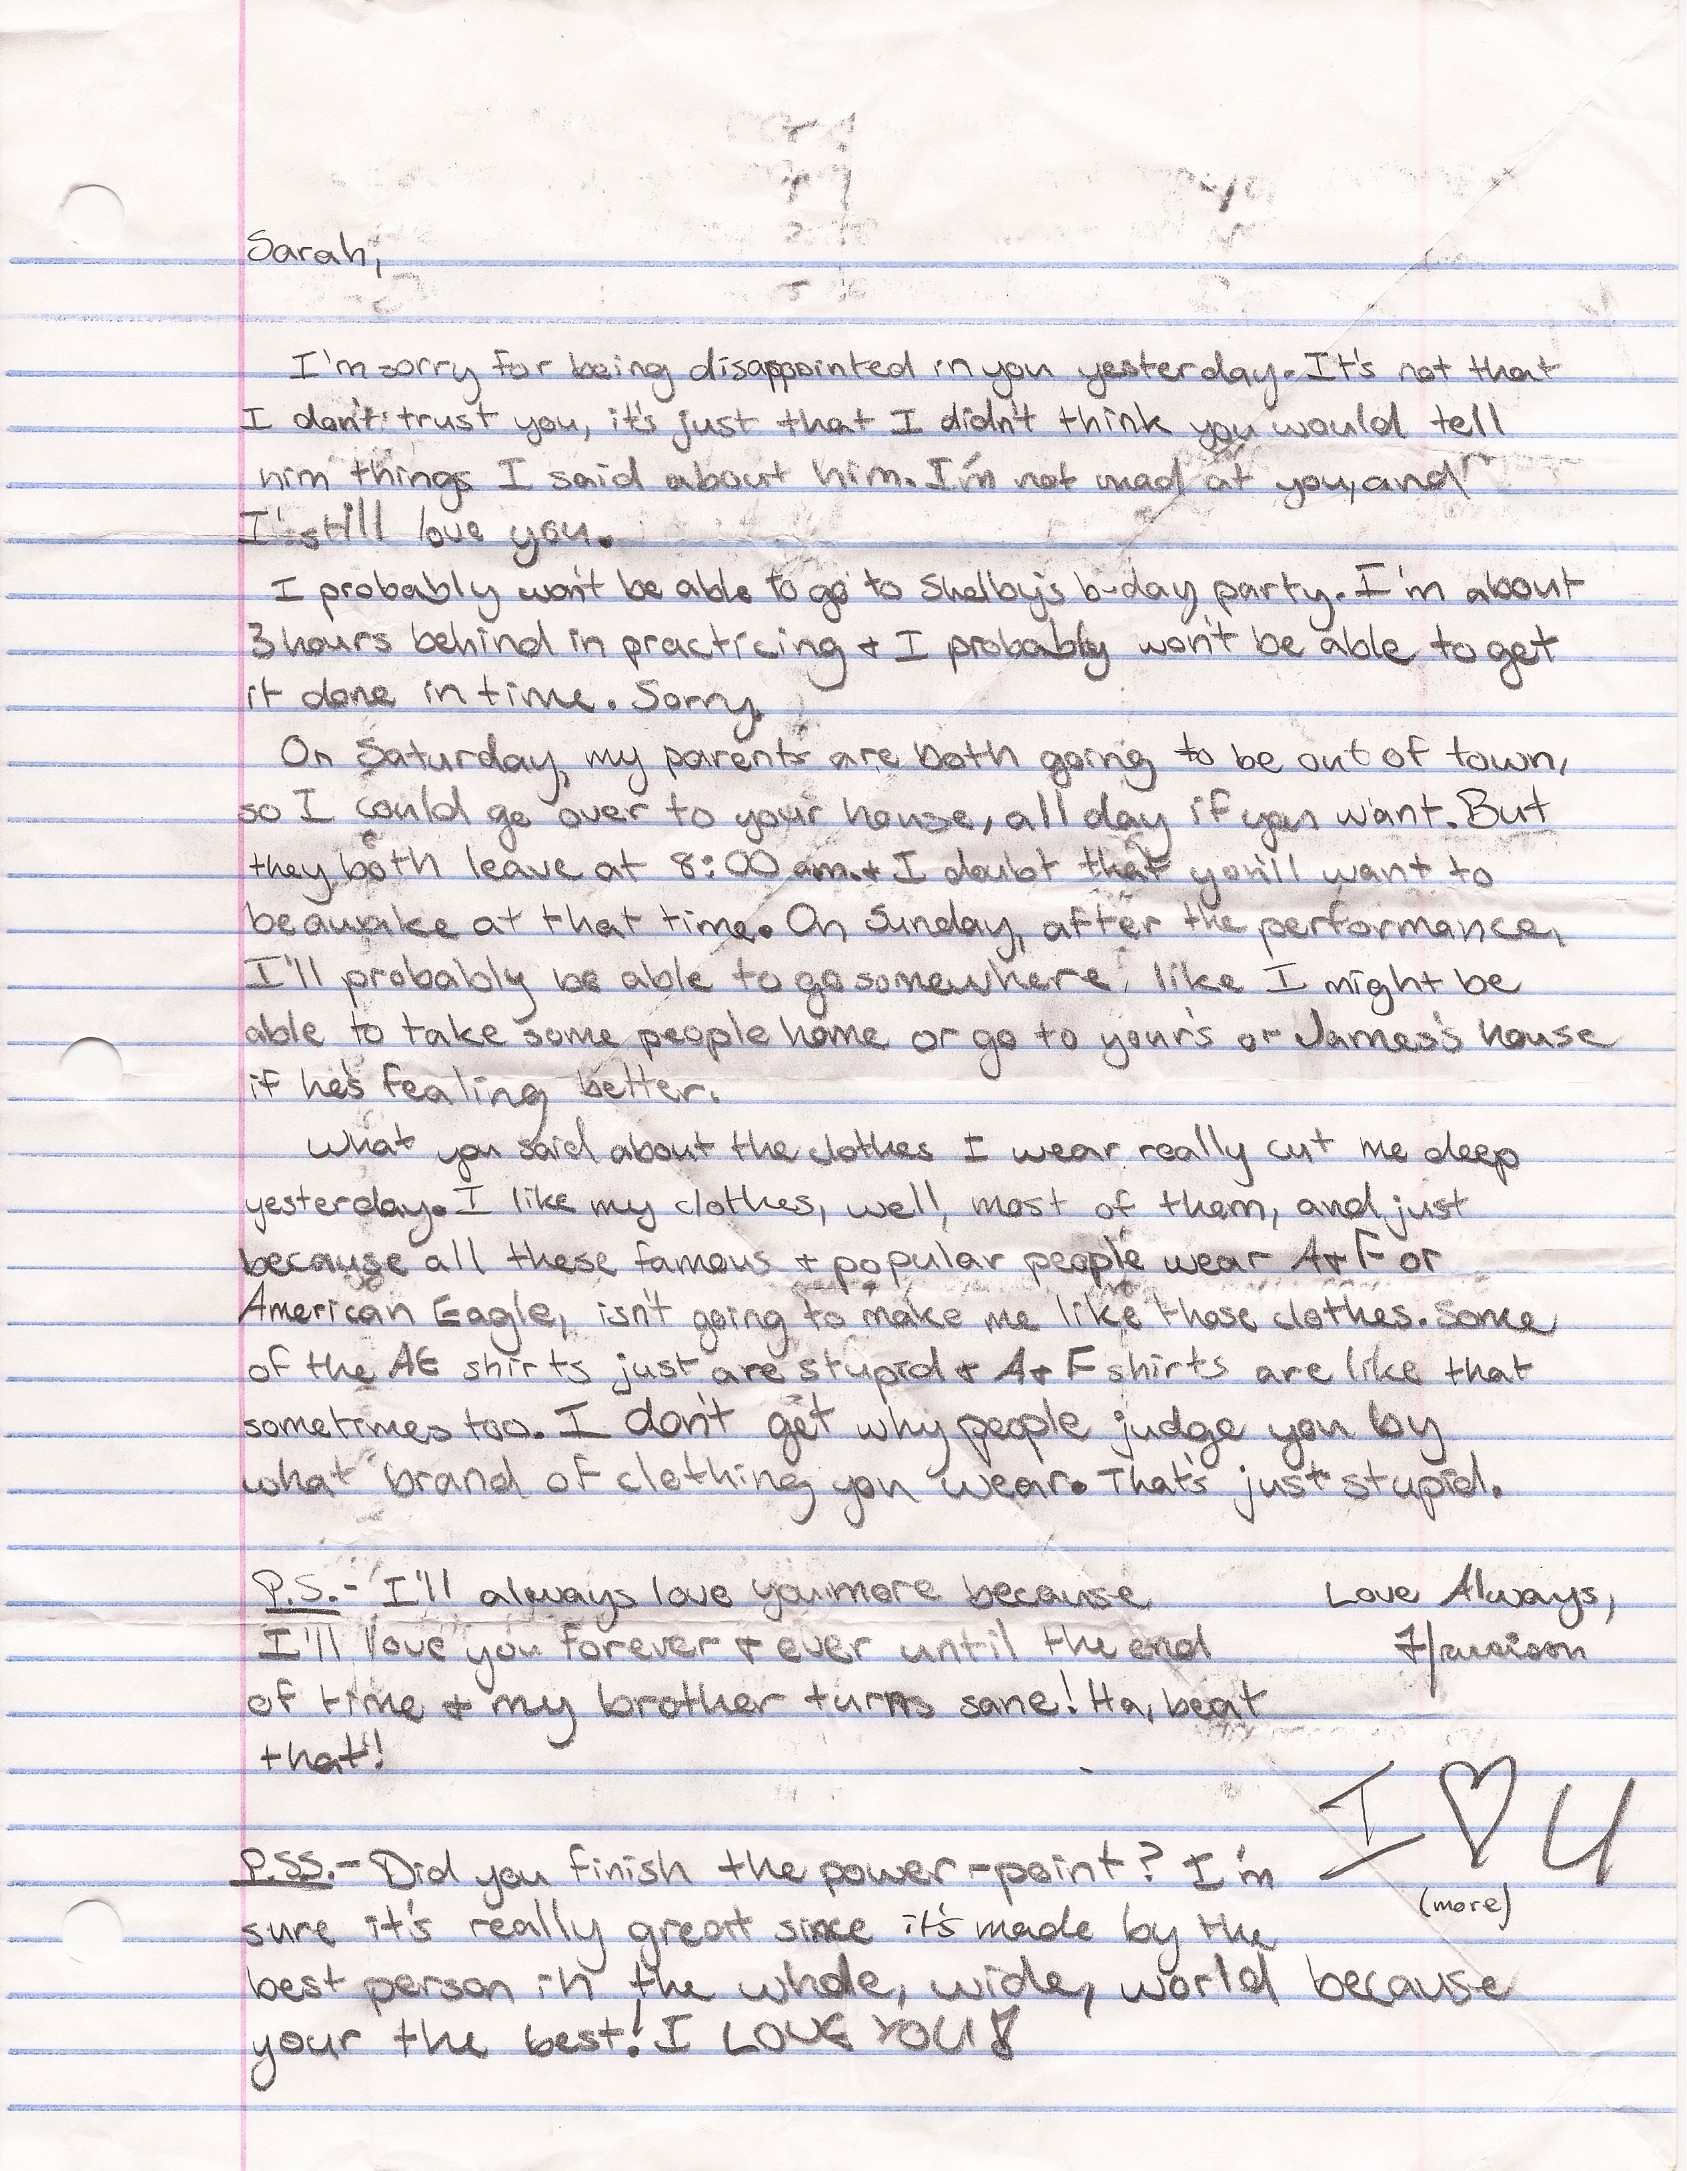 Sarah,
I'm sorry for being disappointed in you yesterday. It's not that
I don't trust you, it's just that I didn't think you would tell
him things I said about him. I'm not mad at you, and
I still love you.
I probably won't be able to go to Shelby's b-day party. I'm about
3 hours behind in practicing + I probably won't be able to get
it done in time. Sorry.
On Saturday, my parents are both going to be out of town,
so I could go over to your house, all day if you want. But
they both leave at 8:00 am. + I doubt that you'll want to
be awake at that time. On Sunday, after the performance,
I'll probably be able to go somewhere, like I might be
able to take some people home or go to your's or James's house
if he's fealing better.
What you said about the clothes I wear really cut me deep
yesterday. I like my clothes, well, most of them, and just
because all these famous + popular people wear A+F or
American Eagle, isn't going to make me like those clothes. Some
of the AE shirts just are stupid + A+F shirts are like that
sometimes too. I don't get why people judge you by
what brand of clothing you wear. That's just stupid.
Love Always,
Harrison
P.S.- I'll always love you more because
I'll love you forever + ever until the end
of time + my brother turns sane! Ha, beat
that!
I ♡ U
(more)
P.SS.- Did you finish the power-point? I'm
sure it's really great since it's made by the
best person in the whole, wide, world because
your the best! I LOVE YOU!